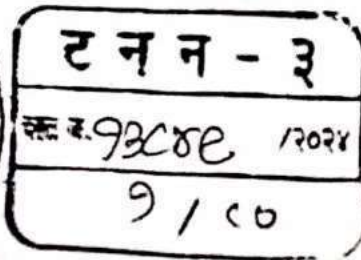 ट न न - ३
दस्त क्र. १३८४९ /२०२४
१ / ८०